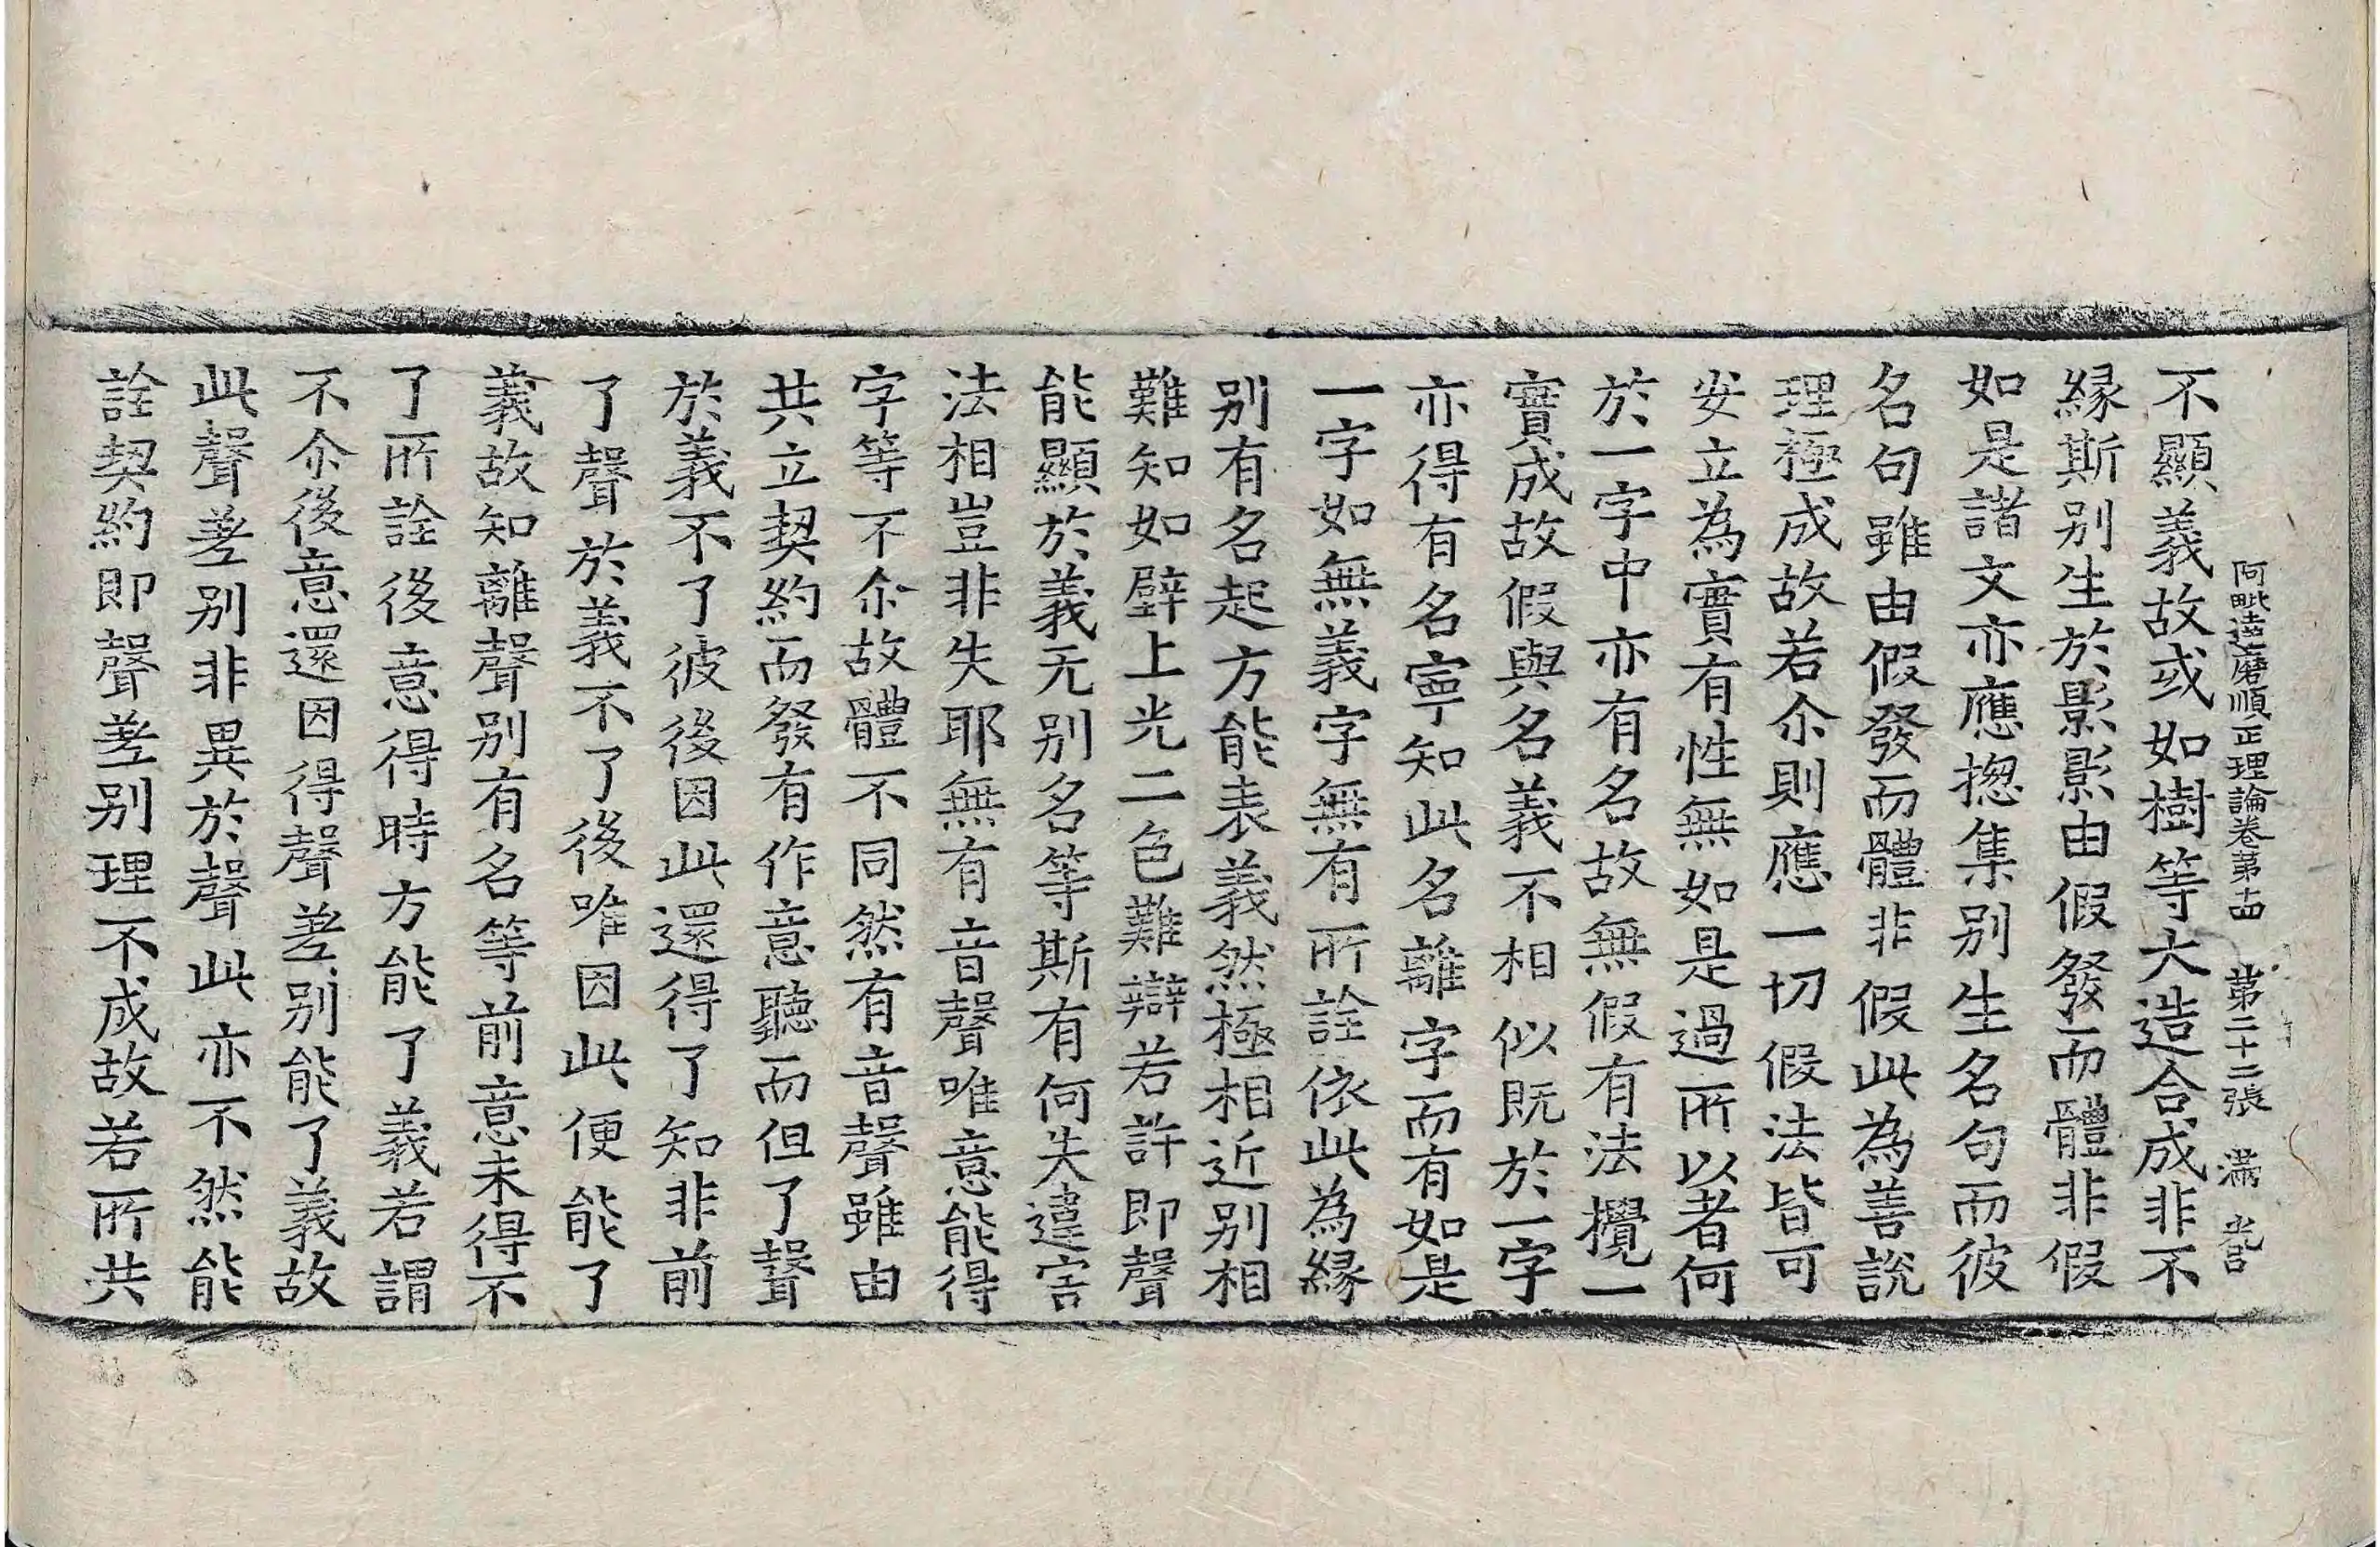 阿毗達磨順正理論卷第十四 第二十二張 滿
不顯義故或如樹等大造合成非不
緣斯別生於影影由假發而體非假
如是諸文亦應揔集別生名句而彼
名句雖由假發而體非假此為善說
理極成故若尒則應一切假法皆可
安立為實有性無如是過所以者何
於一字中亦有名故無假有法攪一
實成故假與名義不相似既於一字
亦得有名寧知此名離字而有如是
一字如無義字無有所詮依此為緣
別有名起方能表義然極相近別相
難知如壁上光二色難辯若許即聲
能顯於義无別名等斯有何失違害
法相豈非失耶無有音聲唯意能得
字等不尒故體不同然有音聲雖由
共立契約而發有作意聽而但了聲
於義不了彼後因此還得了知非前
了聲於義不了後唯因此便能了
義故知離聲別有名等前意未得不
了所詮後意得時方能了義若謂
不尒後意還因得聲差別能了義故
此聲差別非異於聲此亦不然能
詮契約即聲差別理不成故若所共